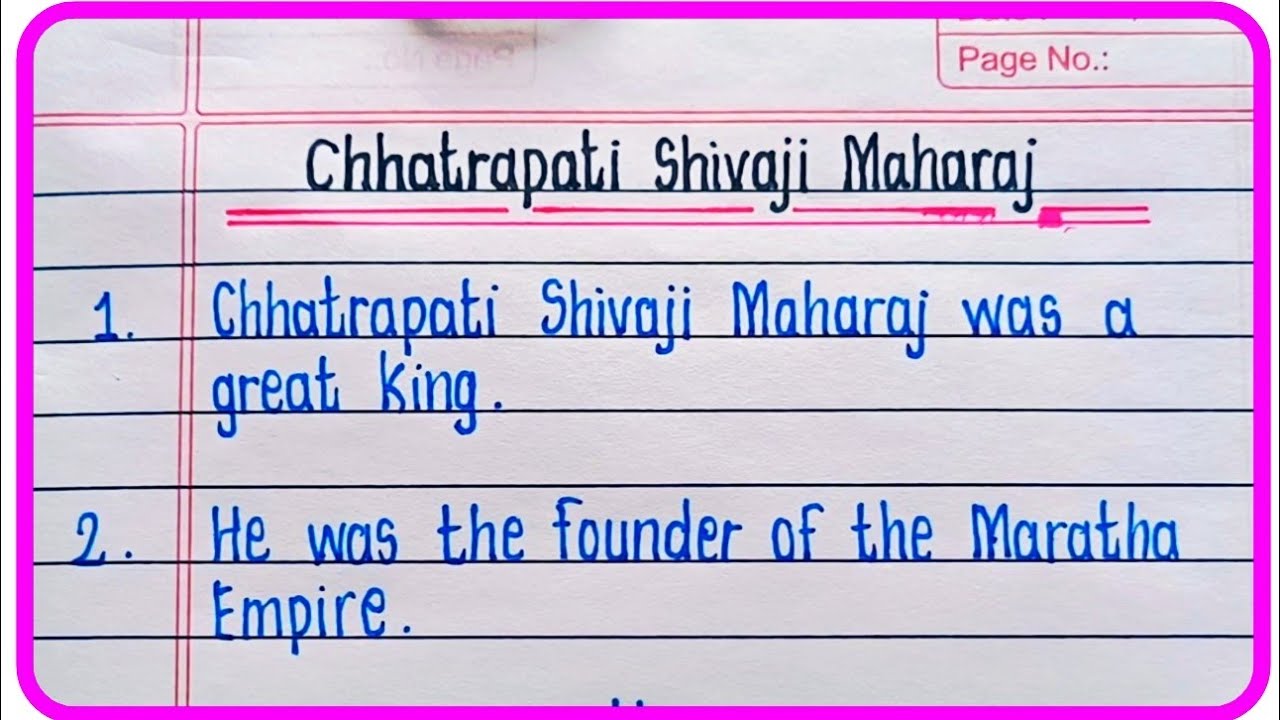 Page No.:
Chhatrapati Shivaji Maharaj
1. Chhatrapati Shivaji Maharaj was a
great king.
2. He was the founder of the Maratha
Empire.